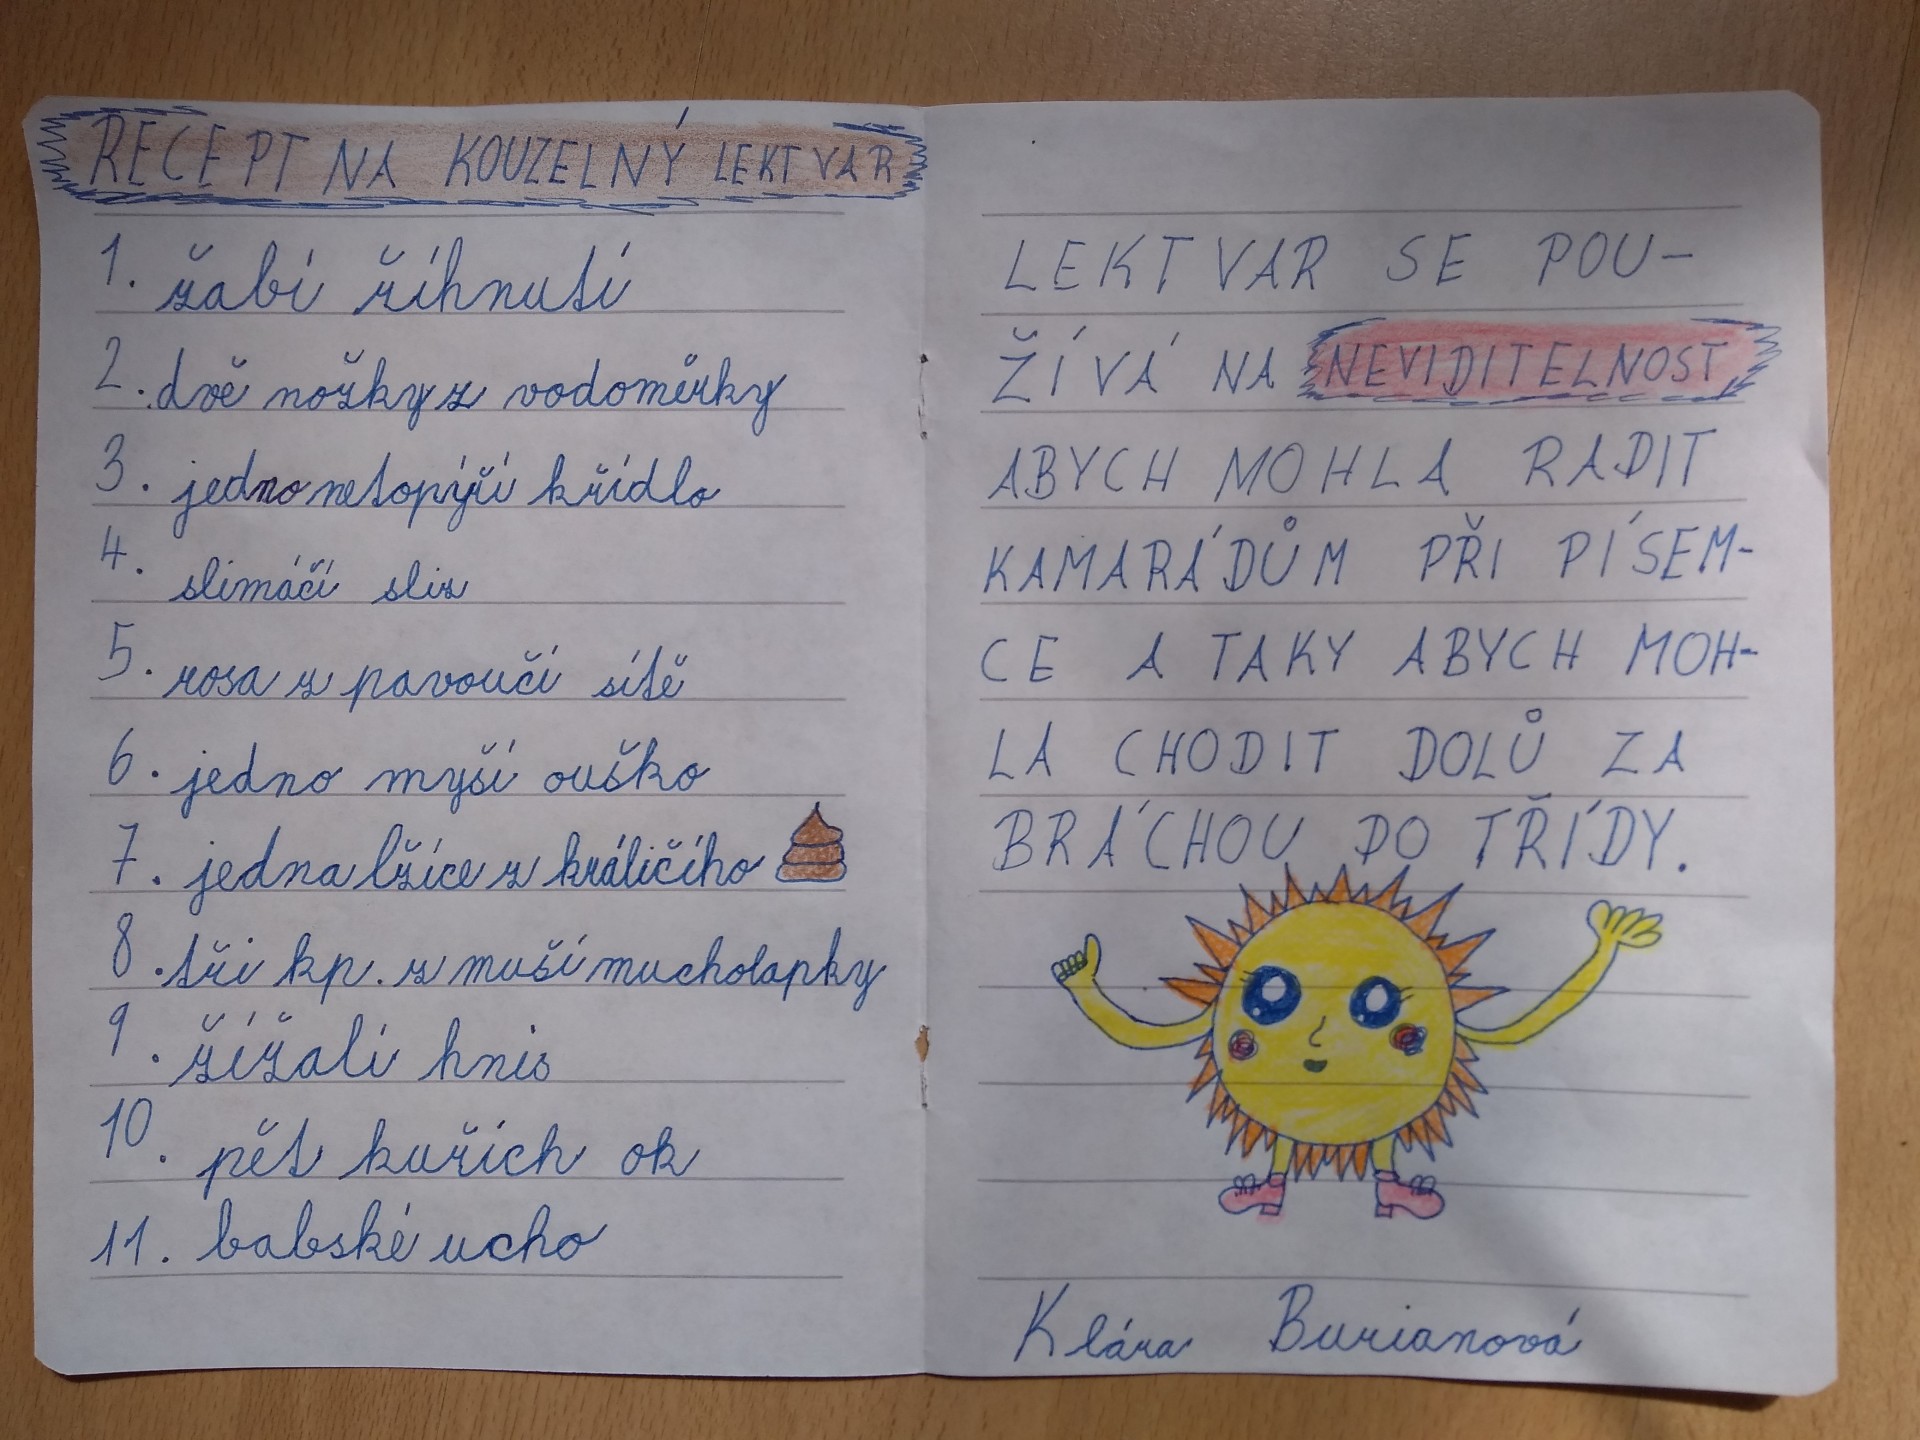 RECEPT NA KOUZELNÝ LEKTVAR
1. žabí říhnutí
2. dvě nožky z vodoměrky
3. jedno netopýří křídlo
4. slimáčí sliz
5. rosa z pavoučí sítě
6. jedno myší ouško
7. jedna lžíce z králičího
8. tři kp. z muší mucholapky
9. žížalí hnis
10. pět kuřích ok
11. babské ucho
LEKTVAR SE POU-
ŽÍVÁ NA NEVIDITELNOST
ABYCH MOHLA RADIT
KAMARÁDŮM PŘI PÍSEM-
CE A TAKY ABYCH MOH-
LA CHODIT DOLŮ ZA
BRÁCHOU DO TŘÍDY.
Klára Burianová